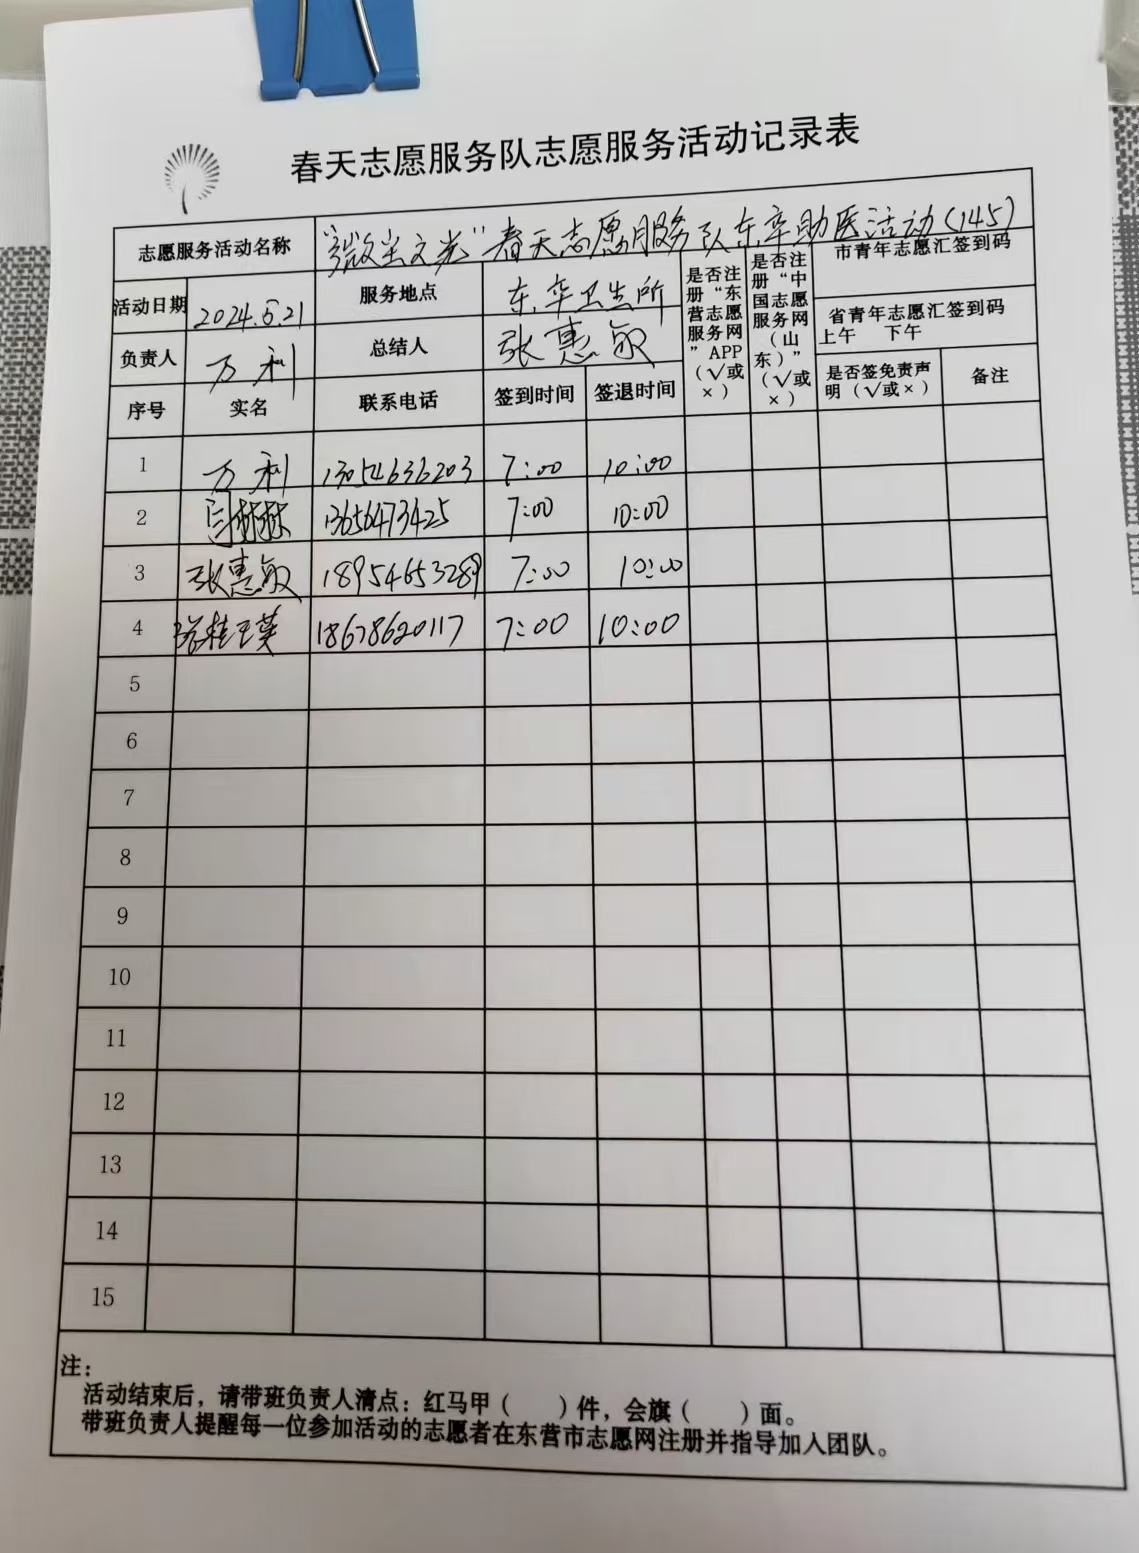 春天志愿服务队志愿服务活动记录表
志愿服务活动名称 “微尘之光”春天志愿服务队东辛助医活动(145)
活动日期 2024.5.21 服务地点 东辛卫生所
负责人 万利 总结人 张惠敏
是否注册“东营志愿服务网”APP(√或×)
是否注册“中国志愿服务网(山东)”(√或×)
市青年志愿汇签到码
省青年志愿汇签到码
上午 下午
序号 实名 联系电话 签到时间 签退时间 是否签免责声明(√或×) 备注
1 万利 13054636203 7:00 10:00
2 闫 13656473425 7:00 10:00
3 张惠敏 18954653289 7:00 10:00
4 18678620117 7:00 10:00
5
6
7
8
9
10
11
12
13
14
15
注:
活动结束后,请带班负责人清点:红马甲( )件,会旗( )面。
带班负责人提醒每一位参加活动的志愿者在东营市志愿网注册并指导加入团队。